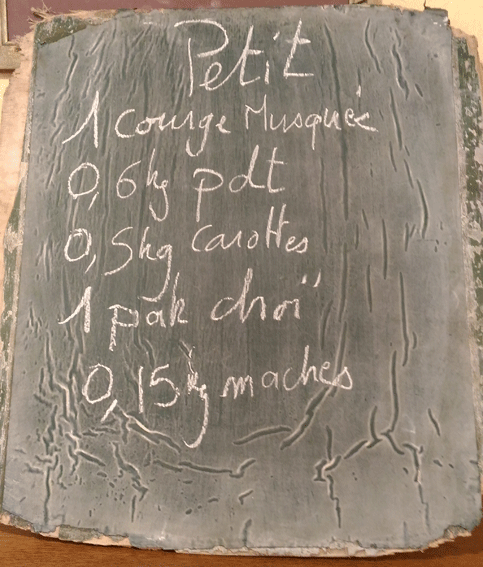 Petit
1 courge Musquée
0,6kg pdt
0,5kg carottes
1 pak choï
0,15kg maches